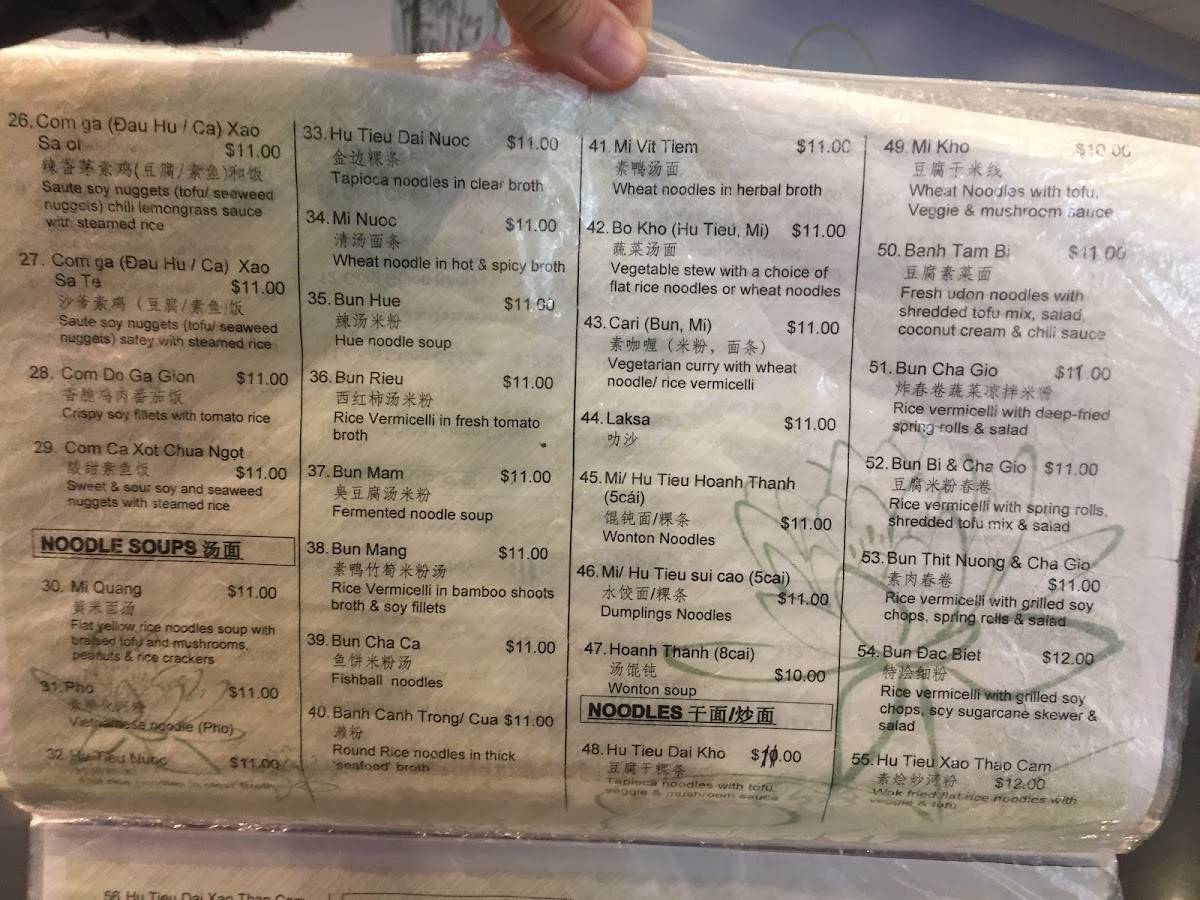 26. Com ga (Đau Hu / Ca) Xao
Sa oi $11.00
辣香茅素鸡(豆腐/素鱼)和饭
Saute soy nuggets (tofu/ seaweed
nuggets) chili lemongrass sauce
with steamed rice
27. Com ga (Đau Hu / Ca) Xao
Sa Te $11.00
沙爹素鸡（豆腐/素鱼)饭
Saute soy nuggets (tofu/ seaweed
nuggets) satey with steamed rice
28. Com Do Ga Gion $11.00
香脆鸡肉番茄饭
Crispy soy fillets with tomato rice
29. Com Ca Xot Chua Ngọt
酸甜素鱼饭 $11.00
Sweet & sour soy and seaweed
nuggets with steamed rice
NOODLE SOUPS 汤面
30. Mi Quang $11.00
黄米面汤
Flat yellow rice noodles soup with
braised tofu and mushrooms,
peanuts & rice crackers
31. Pho $11.00
Vietnamese noodle (Pho)
32. Hu Tieu Nuoc $11.00
33. Hu Tieu Dai Nuoc $11.00
金边粿条
Tapioca noodles in clear broth
34. Mi Nuoc $11.00
清汤面条
Wheat noodle in hot & spicy broth
35. Bun Hue $11.00
辣汤米粉
Hue noodle soup
36. Bun Rieu $11.00
西红柿汤米粉
Rice Vermicelli in fresh tomato
broth
37. Bun Mam $11.00
臭豆腐汤米粉
Fermented noodle soup
38. Bun Mang $11.00
素鸭竹筍米粉汤
Rice Vermicelli in bamboo shoots
broth & soy fillets
39. Bun Cha Ca $11.00
鱼饼米粉汤
Fishball noodles
40. Banh Canh Trong/ Cua $11.00
濑粉
Round Rice noodles in thick
'seafood' broth
41. Mi Vit Tiem $11.00
素鸭汤面
Wheat noodles in herbal broth
42. Bo Kho (Hu Tieu, Mi) $11.00
蔬菜汤面
Vegetable stew with a choice of
flat rice noodles or wheat noodles
43. Cari (Bun, Mi) $11.00
素咖喱（米粉，面条）
Vegetarian curry with wheat
noodle/ rice vermicelli
44. Laksa $11.00
叻沙
45. Mi/ Hu Tieu Hoanh Thanh
(5cái)
馄饨面/粿条 $11.00
Wonton Noodles
46. Mi/ Hu Tieu sui cao (5cai)
水饺面/粿条 $11.00
Dumplings Noodles
47. Hoanh Thanh (8cai)
汤馄饨 $10.00
Wonton soup
NOODLES 干面/炒面
48. Hu Tieu Dai Kho $11.00
豆腐干粿条
Tapioca noodles with tofu,
veggie & mushroom sauce
49. Mi Kho $10.00
豆腐干米线
Wheat Noodles with tofu.
Veggie & mushroom sauce
50. Banh Tam Bi $11.00
豆腐素菜面
Fresh udon noodles with
shredded tofu mix, salad,
coconut cream & chili sauce
51. Bun Cha Gio $11.00
炸春卷蔬菜凉拌米粉
Rice vermicelli with deep-fried
spring rolls & salad
52. Bun Bi & Cha Gio $11.00
豆腐米粉春卷
Rice vermicelli with spring rolls,
shredded tofu mix & salad
53. Bun Thit Nuong & Cha Gio
素肉春卷 $11.00
Rice vermicelli with grilled soy
chops, spring rolls & salad
54. Bun Đac Biet $12.00
特烩细粉
Rice vermicelli with grilled soy
chops, soy sugarcane skewer &
salad
55. Hu Tieu Xao Thao Cam
素烩炒河粉 $12.00
Wok fried flat rice noodles with
veggie & tofu
56. Hu Tieu Dai Xao Thap Cam